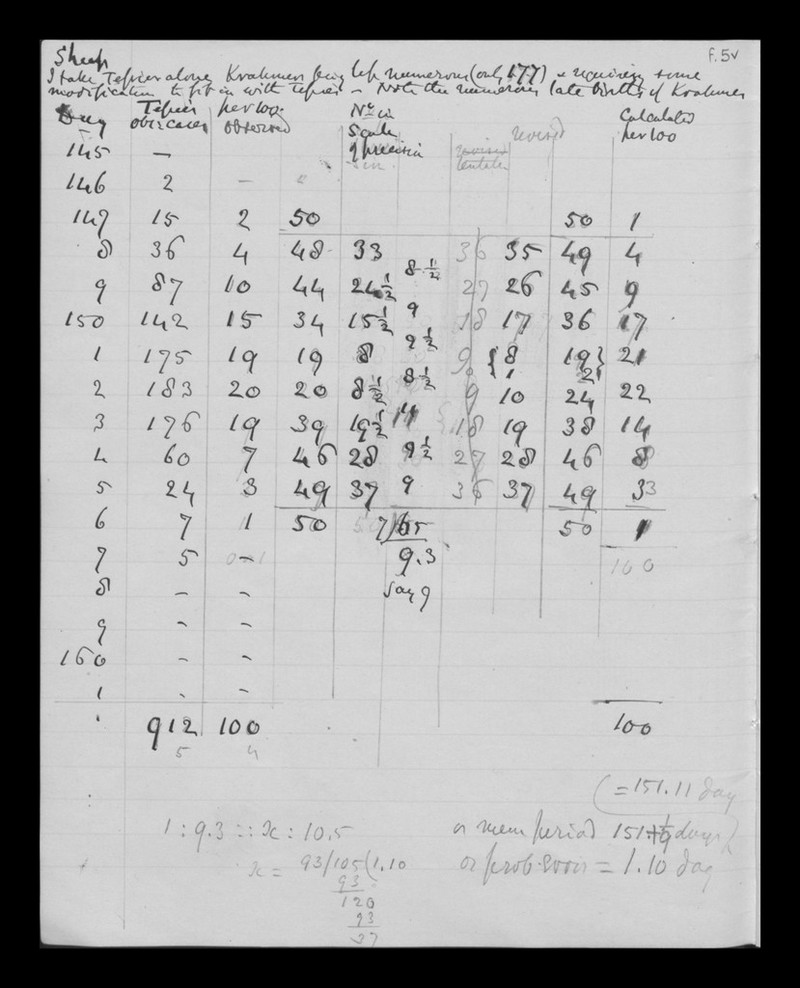 f.5v
Sheep
I take Tessier alone, Krahmer being less numerous (only 177) & requiring some
modification to fit in with Tessier – Note the numerous late births of Krahmer
Day Tessier obs: cases per 100 observed No in Scale of precision revised Calculated per 100
145 —
146 2 –
147 15 2 50 50 1
8 36 4 48 33 36 35 49 4
8 1/2
9 87 10 44 24 1/2 27 26 45 9
9
150 142 15 34 15 1/2 18 17 36 17
9 1/2
1 175 19 19 8 9 { 8 19 } 21
8 1/2 1 21
2 183 20 20 8 1/2 9 10 24 22
3 176 19 39 19 1/2 11 18 19 38 14
4 60 7 46 28 9 1/2 27 28 46 8
5 24 3 49 37 9 36 37 49 33
6 7 1 50 7)65 50 1
7 5 0–1 9.3 100
8 – – say 9
9 – –
160 – –
1 - –
912 100 100
5 4
(= 151.11 day
1 : 9.3 :: x : 10.5 or mean period 151 1/9 days
x = 93/105(1.10 or prob. error = 1.10 day
93
120
93
27